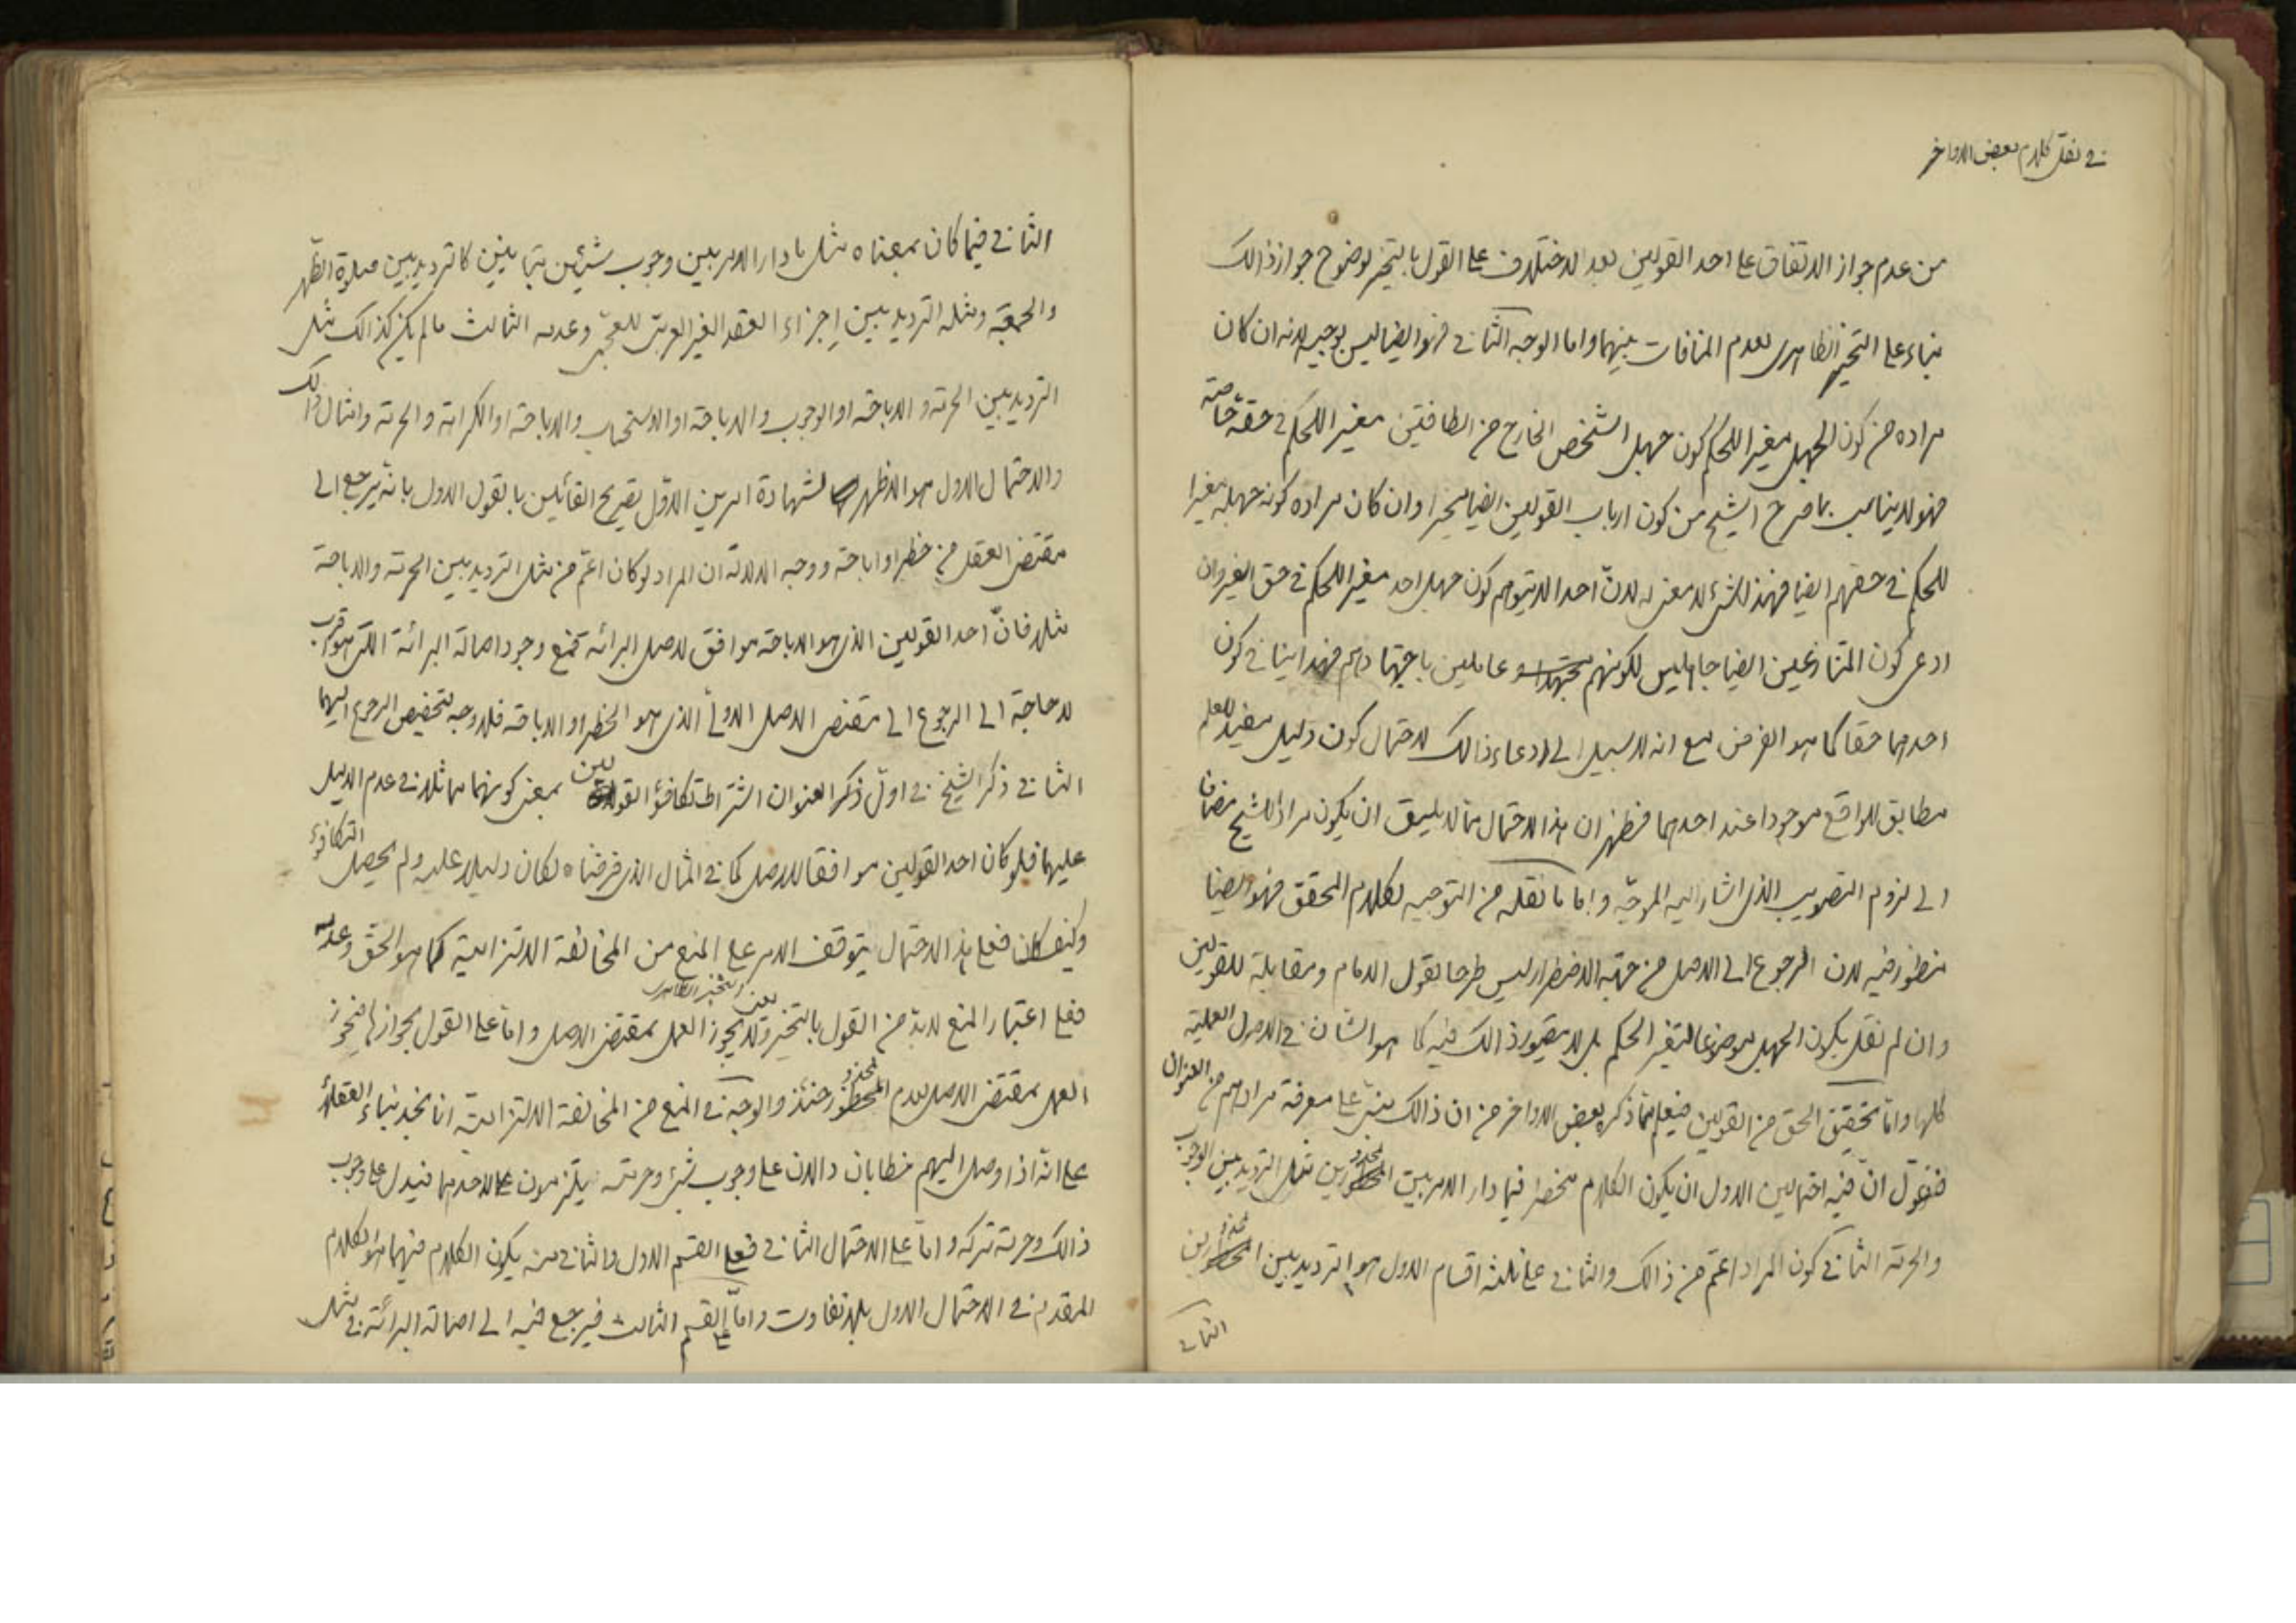 في نقل كلام بعض الاواخر
من عدم جواز الاتفاق على احد القولين بعد الاختلاف على القول بالتخيير لوضوح جواز ذالك
بناء على التخيير الظاهرى لعدم المنافات بينهما واما الوجه الثاني فهو ايضا ليس بوجيه لانه ان كان
مراده من كون الجهل مغيرا للحكم كون جهل الشخص الخارج من الطائفتين مغيرا للحكم في حقه خاصة
فهو لا يناسب بما صرح الشيخ من كون ارباب القولين ايضا مخيرا وان كان مراده كونه جهله مغيرا
للحكم في حقهم ايضا فهذا الشئ لا معنى له لانّ احدا لا يتوهم كون جهل احد مغيرا للحكم في حق الغير وان
ادعى كون المتنازعين ايضا جاهلين لكونهم عاملين باجتهادهم فهذا ينافي كون
احدهما حقا كما هو الفرض مع انه لا سبيل الى ادعاء ذالك لاحتمال كون دليل مفيد للعلم
مطابق للواقع موجودا عند احدهما فظهر ان هذا الاحتمال مما لا يليق ان يكون مرادا للشيخ مضافا
الى لزوم التصويب الذى اشار اليه الموجّه واما ما نقله من التوجيه لكلام المحقق فهو ايضا
منظور فيه لان الرجوع الى الاصل من جهة الاضطرار ليس طرحا لقول الامام ومقابلة للقولين
وان لم نقل بكون الجهل موضوعا لتغير الحكم بل لا يتصور ذالك فيه كما هو الشان في الاصول العملية
كلها واما تحقيق الحق من القولين فيعلم مما ذكره بعض الاواخر من ان ذالك مبنى على معرفة مرادهم من العنوان
فنقول انّ فيه احتمالين الاول ان يكون الكلام منحصرا فيما دار الامر بين المحذورين مثل الترديد بين الوجوب
والحرمة الثاني كون المراد اعم من ذالك والثاني على ثلثة اقسام الاول هو الترديد بين المحذورين
الثاني
الثاني فيما كان بمعناه مثل ما دار الامر بين وجوب شيئين متباينين كالترديد بين صلوة الظهر
والجمعة ومثله الترديد بين اجزاء العقد الغير العربى للعجمى وعدمه الثالث ما لم يكن كذالك مثل
الترديد بين الحرمة والاباحة او الوجوب والاباحة او الاستحباب والاباحة او الكراهة والحرمة وامثال ذالك
والاحتمال الاول هو الاظهر لشهادة امرين الاوّل تصريح القائلين بالقول الاول بانّه يرجع الى
مقتضى العقل من حظر او اباحة ووجه الدلالة ان المراد لو كان اعمّ من مثل الترديد بين الحرمة والاباحة
مثلا فانّ احد القولين الذى هو الاباحة موافق لاصل البرائة فمع وجود اصالة البرائة التى هو اقرب
لا حاجة الى الرجوع الى مقتضى الاصل الاولى الذى هو الحظر او الاباحة فلا وجه لتخصيص الرجوع اليهما
الثاني ذكر الشيخ في اوّل ذكر العنوان اشتراط تكافؤ القولين بمعنى كونهما مماثلا في عدم الدليل
عليهما فلو كان احد القولين موافقا للاصل كما في المثال الذى فرضناه لكان دليلا عليه ولم يحصل التكافؤ
وكيف كان فعلى هذا الاحتمال يتوقف الامر على المنع من المخالفة الالتزامية كما هو الحق وعدمه
فعلى اعتبار المنع لا بدّ من القول بالتخيير يعنى التخيير الظاهرى ولا يجوز العمل بمقتضى الاصل واما على القول بجوازها فيجوز
العمل بمقتضى الاصل لعدم المحذور حينئذ والوجه في المنع من المخالفة الالتزامية انا نجد بناء العقلاء
على انّه اذا وصل اليهم خطابان دالان على وجوب شئ وحرمته يلتزمون لاحدهما فيدل على وجوب
ذالك وحرمة تركه واما على الاحتمال الثاني فعلى القسم الاول والثاني منه يكون الكلام فيهما هو الكلام
المقدم في الاحتمال الاول بلا تفاوت وامّا على القسم الثالث فيرجع فيه الى اصالة البرائة في مثل